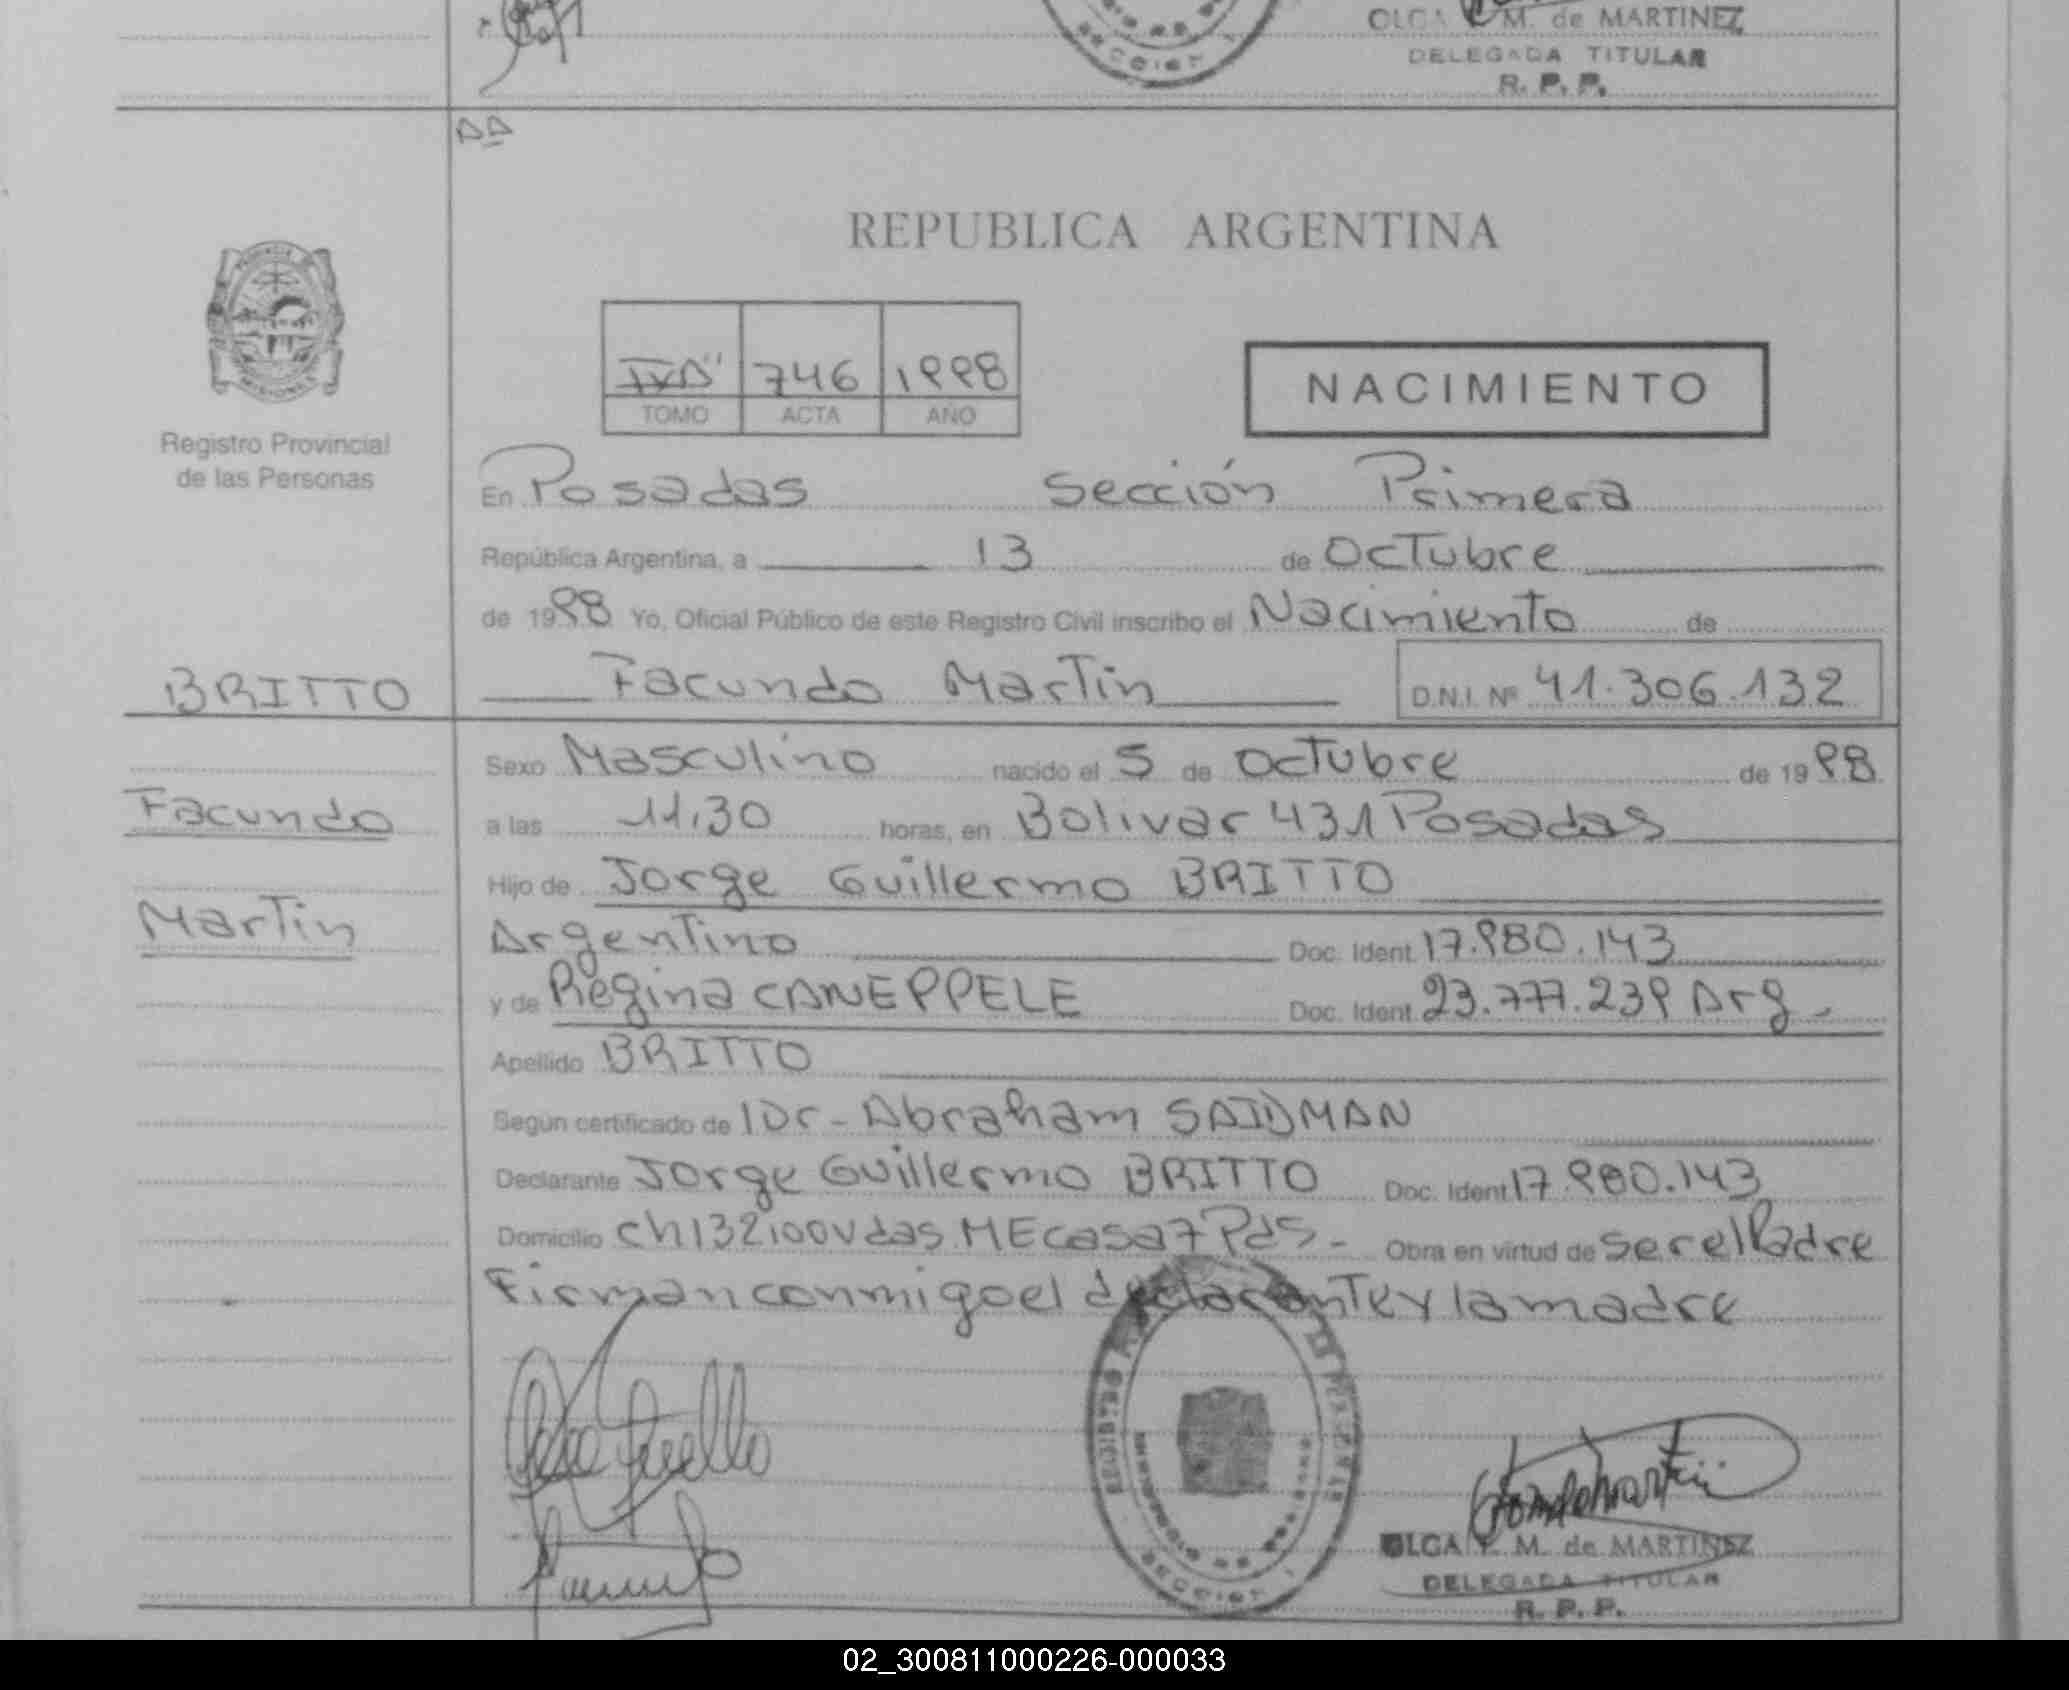 OLGA M. de MARTINEZ
DELEGADA TITULAR
R. P. P.
REPUBLICA ARGENTINA
PROVINCIA
MISIONES
Registro Provincial
de las Personas
746 1998
TOMO ACTA AÑO
NACIMIENTO
En Posadas Sección Primera
República Argentina, a 13 de Octubre
de 1998 Yo, Oficial Público de este Registro Civil inscribo el Nacimiento de
BRITTO
Facundo Martin D.N.I. Nº 41.306.132
Sexo Masculino nacido el 5 de Octubre de 1998
Facundo
a las 11,30 horas, en Bolivar 431 Posadas
Hijo de Jorge Guillermo BRITTO
Martin
Argentino Doc. Ident. 17.980.143
y de Regina CANEPPELE Doc. Ident. 23.777.239 Arg.
Apellido BRITTO
Según certificado de Dr. Abraham SAIDMAN
Declarante Jorge Guillermo BRITTO Doc. Ident. 17.980.143
Domicilio ch132 100vdas ME casa 7 Pds. Obra en virtud de ser el Padre
Firman conmigo el declarante y la madre
SECCION 1
OLGA M. de MARTINEZ
DELEGADA TITULAR
R. P. P.
02_300811000226-000033